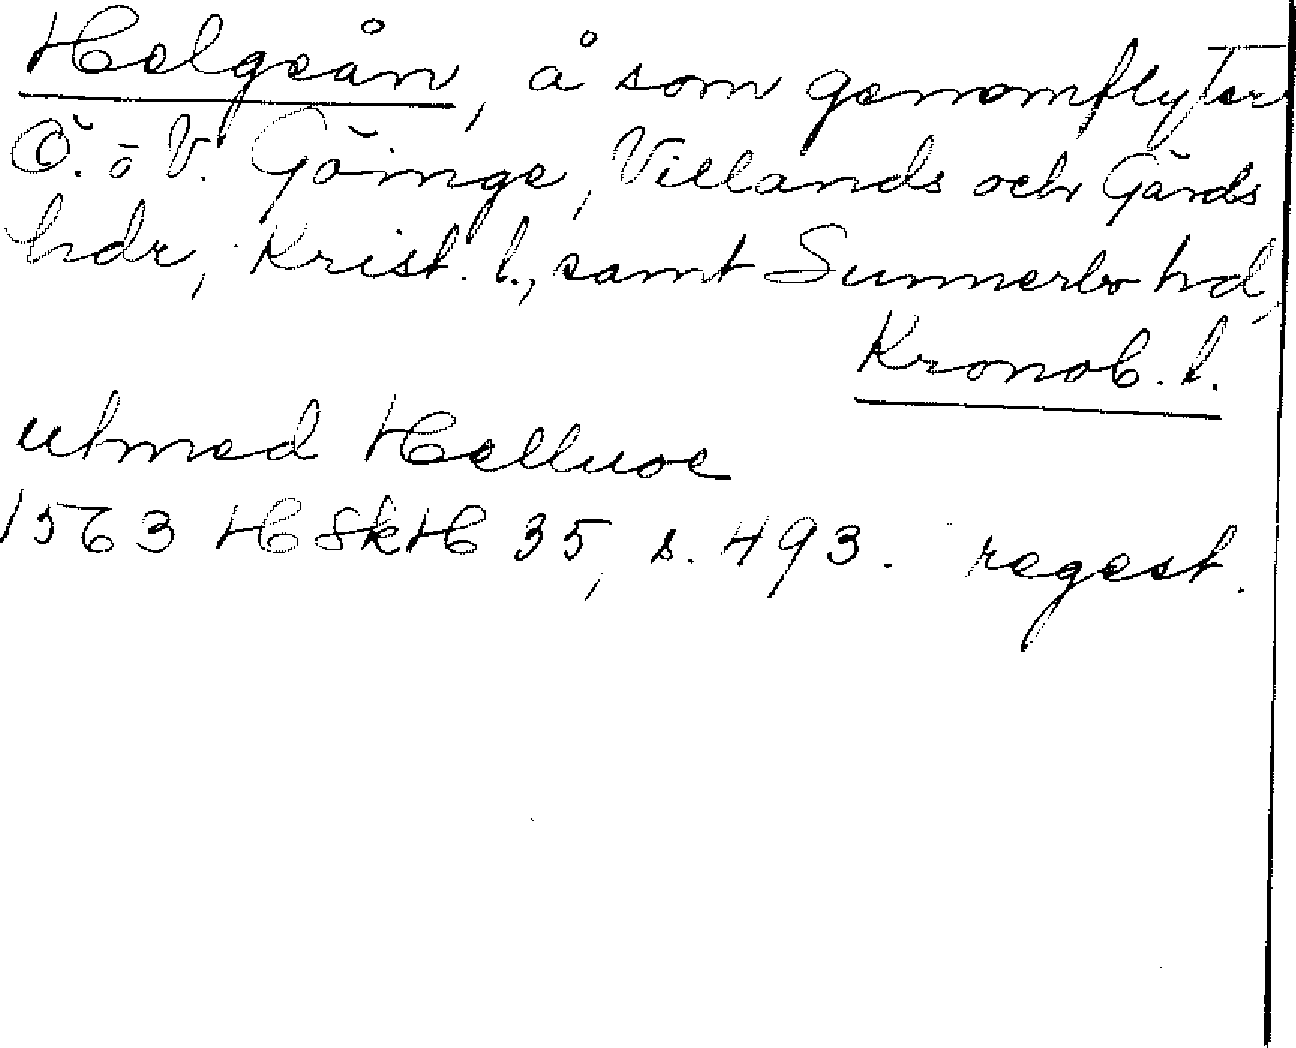 Helgeån, å som genomflyter
Ö. o V. Göinge, Villands och Gärds
hdr, Krist. l., samt Sunnerbo hd,
Kronob. l.
utmed Helluoe
1563 HSkH 35, s. 493. regest.